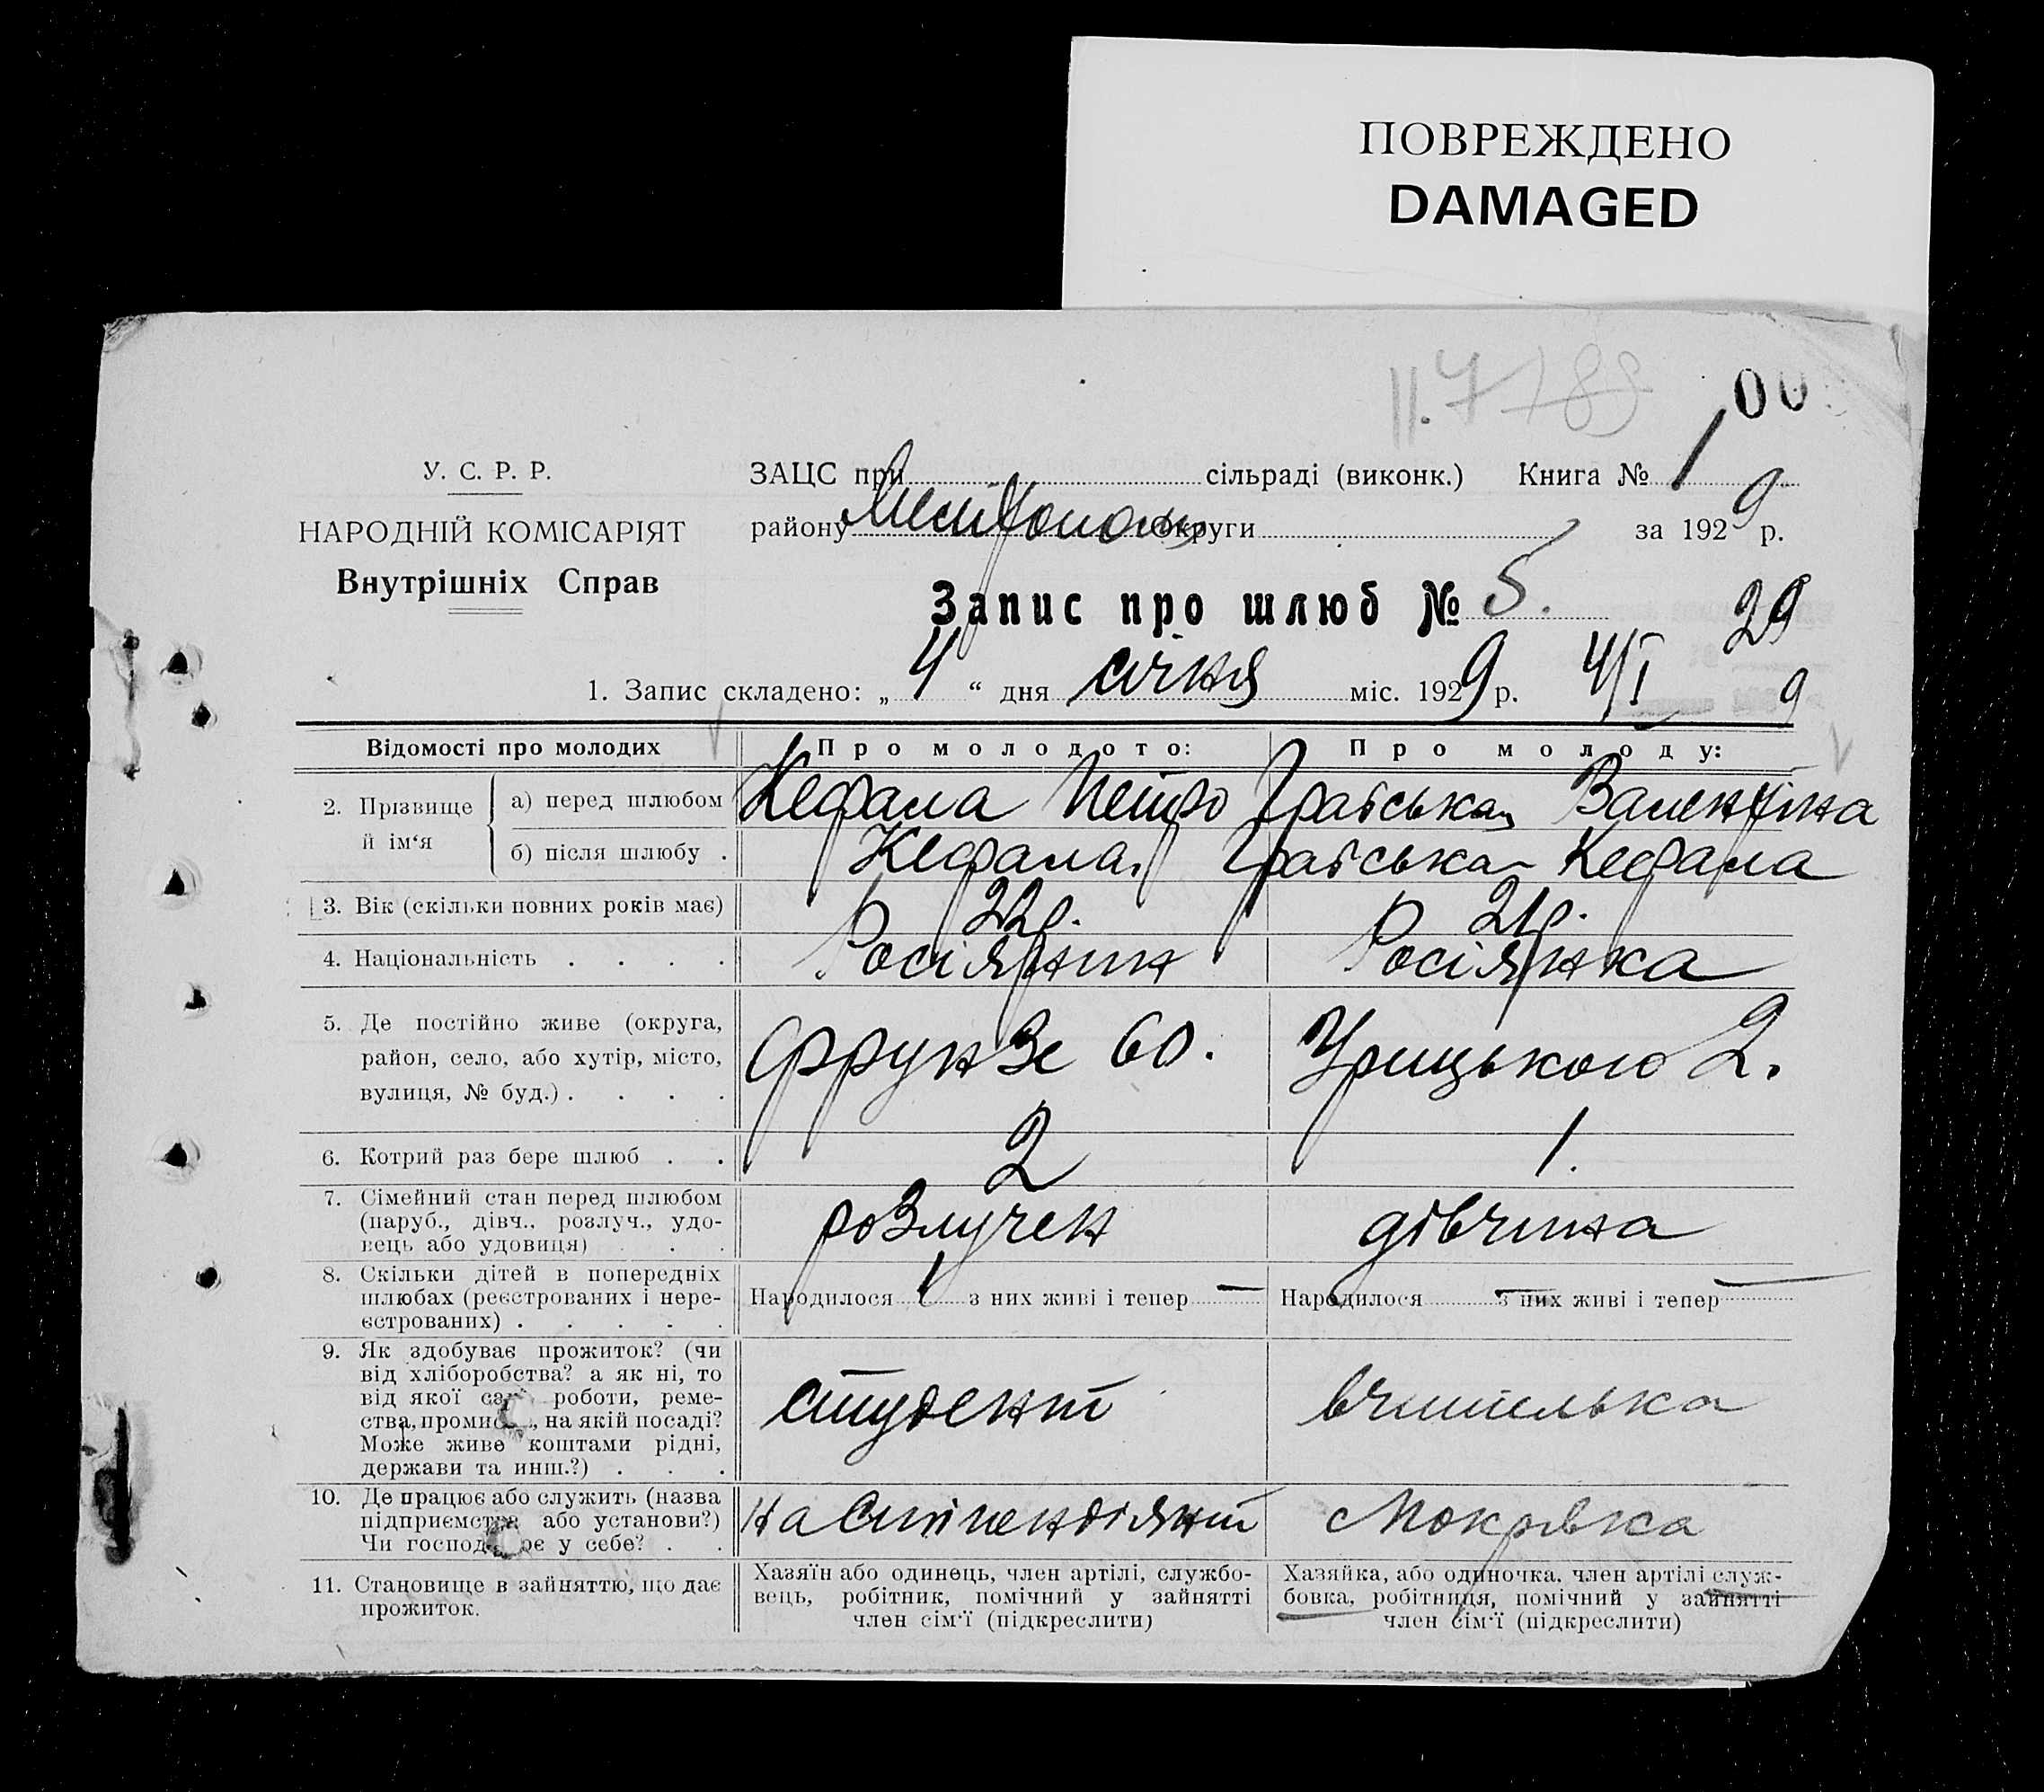 ПОВРЕЖДЕНО
DAMAGED
11.4/89
00
У. С. Р. Р.
НАРОДНІЙ КОМІСАРІЯТ
Внутрішніх Справ
ЗАЦС при сільраді (виконк.) Книга № 1
району Мелітополь округи за 1929 р.
Запис про шлюб № 5.
29
1. Запис складено: „4“ дня січня міс. 1929 р. 4/I 9
Відомості про молодих Про молодого: Про молоду:
2. Прізвище й ім‘я
а) перед шлюбом Кефала Петро Гратська Валентіна
б) після шлюбу . Кефала. Гратська-Кефала
3. Вік (скільки повних років має) 22р. 21р.
4. Національність . . . . Росіянин Росіянка
5. Де постійно живе (округа,
район, село, або хутір, місто,
вулиця, № буд.) . . . .
Фрунзе 60. Урицького 2.
6. Котрий раз бере шлюб . . 2 1.
7. Сімейний стан перед шлюбом
(паруб., дівч., розлуч., удо-
вець або удовиця) . . .
розлучен дівчина
8. Скільки дітей в попередніх
шлюбах (реєстрованих і нере-
єстрованих) . . . . .
Народилося 1 з них живі і тепер —
Народилося — з них живі і тепер —
9. Як здобуває прожиток? (чи
від хліборобства? а як ні, то
від якої роботи, реме-
ства, , на якій посаді?
Може живе коштами рідні,
держави та инш.?) . . .
студент вчителька
10. Де працює або служить (назва
підприємства або установи?)
Чи господарює у себе? . .
на Стіпендіянт Мокрівка
11. Становище в зайняттю, що дає
прожиток.
Хазяїн або одинець, член артілі, службо-
вець, робітник, помічний у зайнятті
член сім‘ї (підкреслити)
Хазяйка, або одиночка, член артілі служ-
бовка, робітниця, помічний у зайнятті
член сім‘ї (підкреслити)